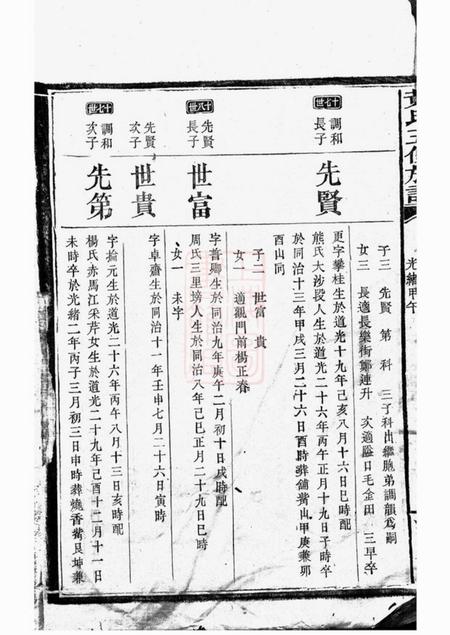 光緒甲午
子三 先賢 第 科 三子科出繼胞弟調韻爲嗣
女三 長適長樂街鄒連升 次適隘口毛金田 三早卒
十七世
調和長子
先賢
更字攀桂生於道光十九年己亥八月十六日巳時配
熊氏大沙段人生於道光二十六年丙午正月十九日子時卒
於同治十三年甲戌三月二十六日酉時葬舖嘴山甲庚兼卯
酉山向
子二 世富 貴
女一 適觀門前楊正春
十八世
先賢長子
世富
字普卿生於同治九年庚午二月初十日戌時配
周氏三里塝人生於同治八年己巳正月二十九日巳時
女一 未字
先賢次子
世貴
字卓齋生於同治十一年壬申七月二十六日寅時
十七世
調和次子
先第
字掄元生於道光二十六年丙午八月十三日亥時配
楊氏赤馬江采芹女生於道光二十九年己酉十二月十一日
未時卒於光緒二年丙子三月初三日申時葬燒香嘴艮坤兼